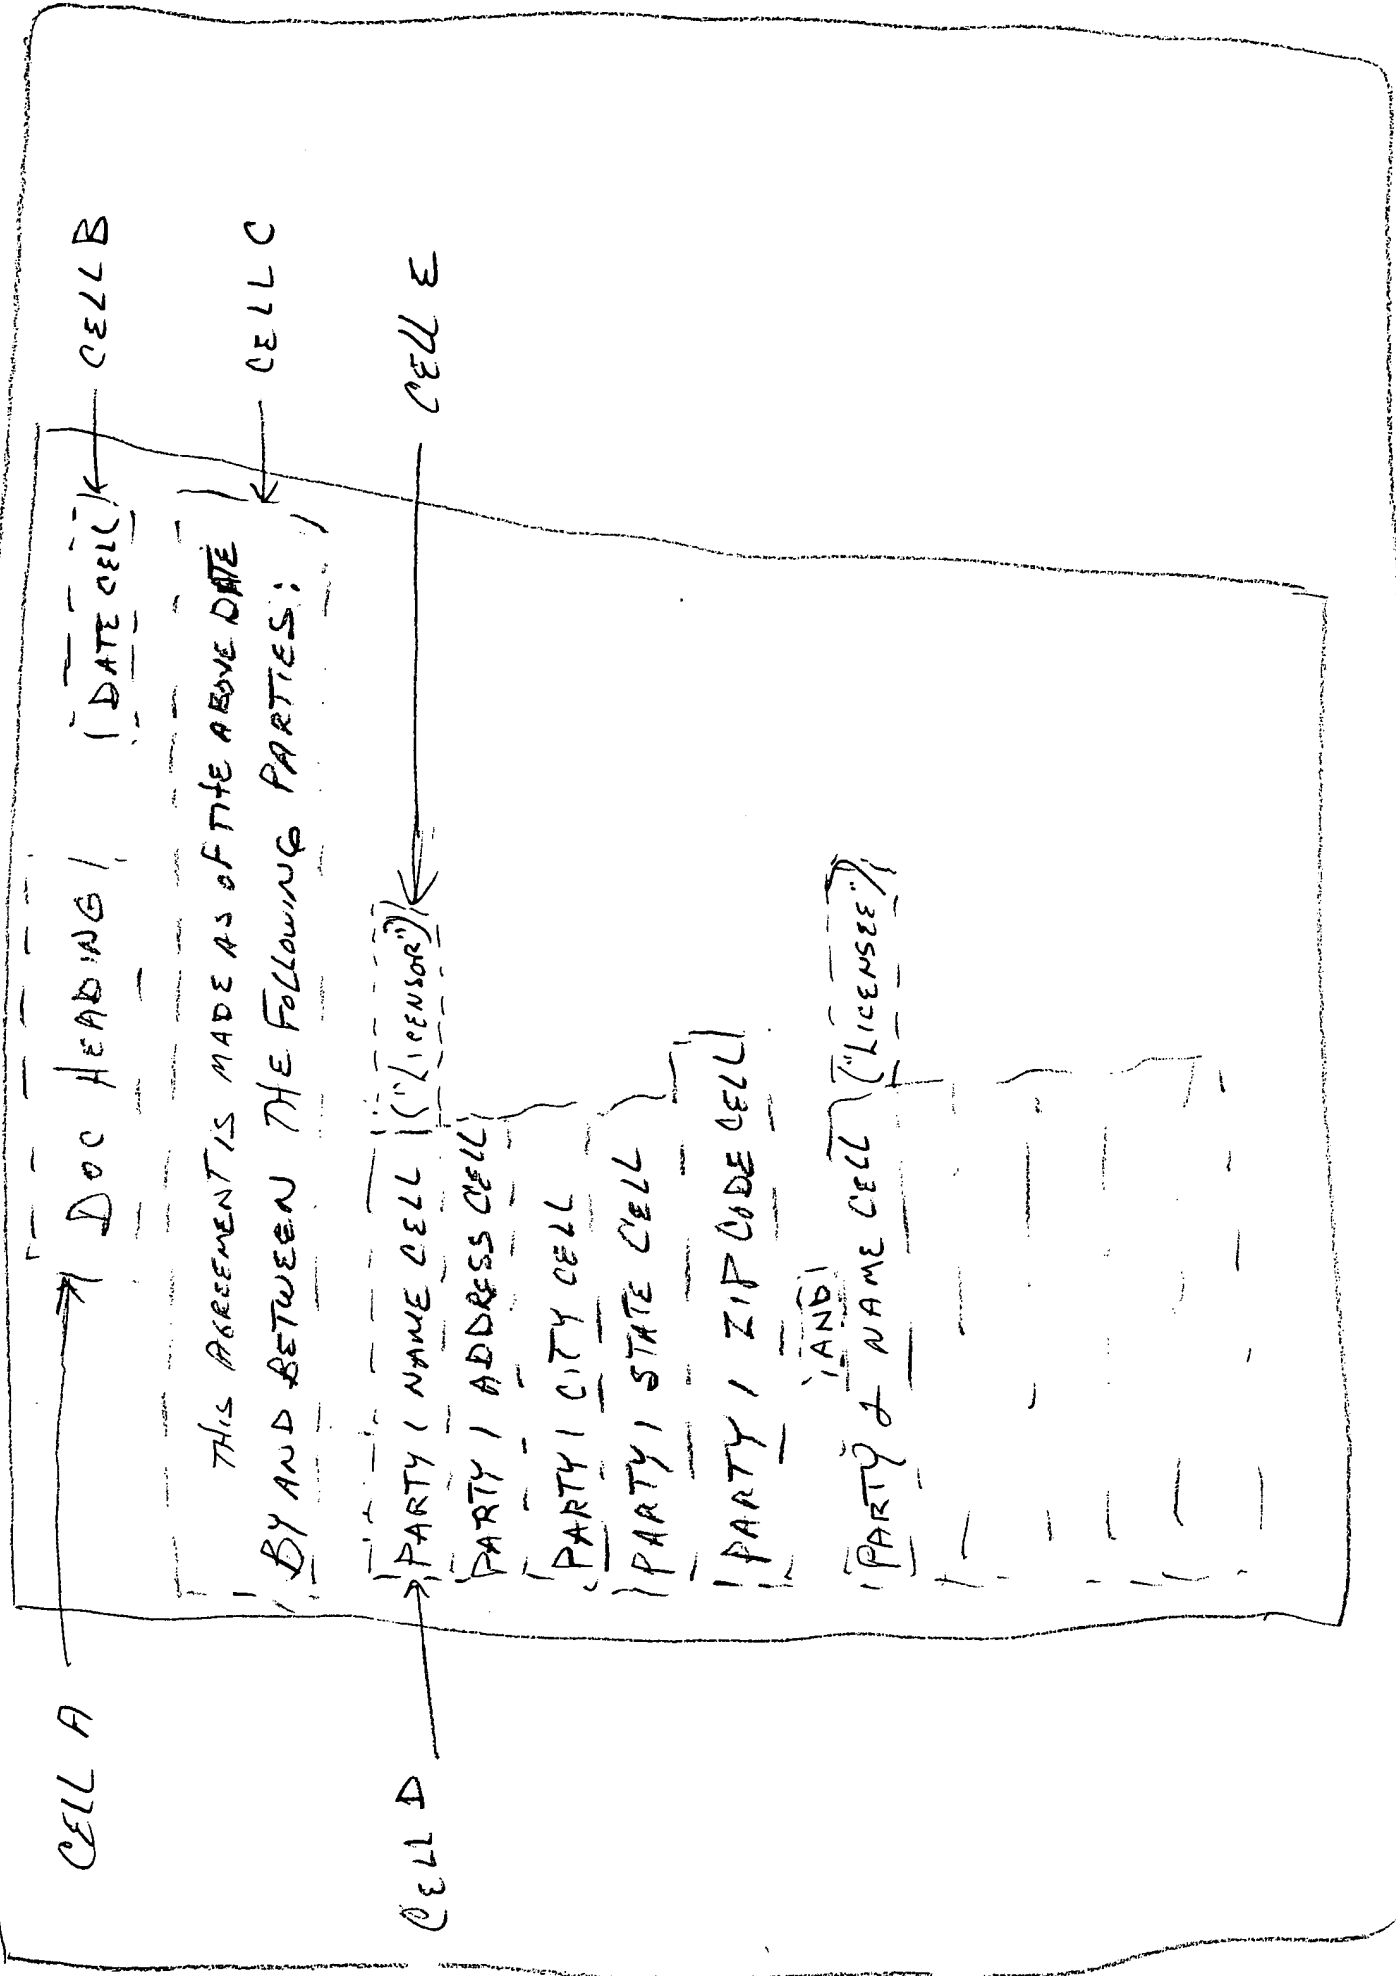 CELL A
DOC HEADING
(DATE CELL)
CELL B
THIS AGREEMENT IS MADE AS OF THE ABOVE DATE
BY AND BETWEEN THE FOLLOWING PARTIES:
CELL C
CELL D
PARTY 1 NAME CELL
("LICENSOR")
CELL E
PARTY 1 ADDRESS CELL
PARTY 1 CITY CELL
PARTY 1 STATE CELL
PARTY 1 ZIP CODE CELL
AND
PARTY 2 NAME CELL
("LICENSEE")